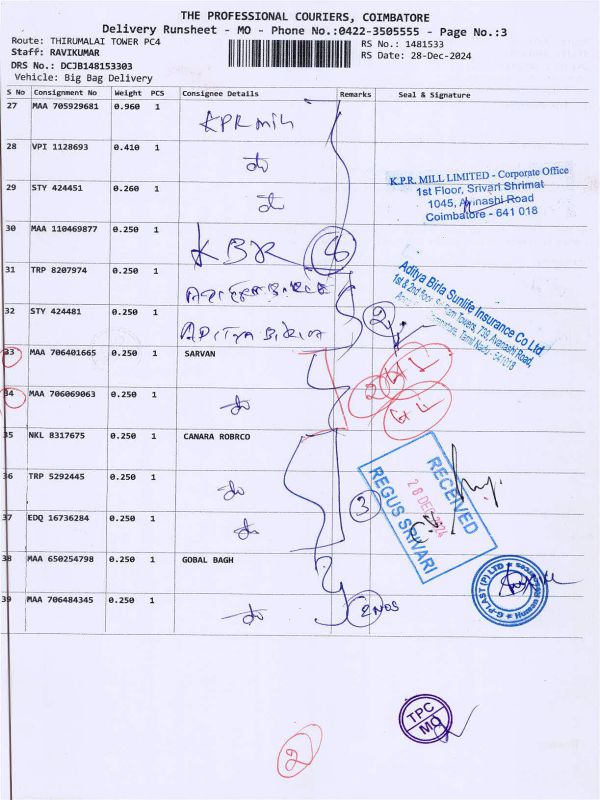 THE PROFESSIONAL COURIERS, COIMBATORE
Delivery Runsheet - MO - Phone No.:0422-3505555 - Page No.:3
Route: THIRUMALAI TOWER PC4
RS No.: 1481533
Staff: RAVIKUMAR
RS Date: 28-Dec-2024
DRS No.: DCJB148153303
Vehicle: Big Bag Delivery
S No Consignment No Weight PCS Consignee Details Remarks Seal & Signature
27 MAA 705929681 0.960 1 KPR Mill
28 VPI 1128693 0.410 1 do
29 STY 424451 0.260 1 do
K.P.R. MILL LIMITED - Corporate Office
1st Floor, Srivari Shrimat
1045, Avinashi Road
Coimbatore - 641 018
30 MAA 110469877 0.250 1 KBR
31 TRP 8207974 0.250 1
Aditya Birla Sunlife Insurance Co Ltd
32 STY 424481 0.250 1 ADITYA BIRLA 2
33 MAA 706401665 0.250 1 SARVAN
34 MAA 706069063 0.250 1 do 2
35 NKL 8317675 0.250 1 CANARA ROBRCO
36 TRP 5292445 0.250 1 do 3
RECEIVED
28 DEC 2024
REGUS SRIVARI
37 EDQ 16736284 0.250 1 do
38 MAA 650254798 0.250 1 GOBAL BAGH
39 MAA 706484345 0.250 1 do 2 NOS
G-PLAST (P) LTD
Human Resources
TPC
MO
2